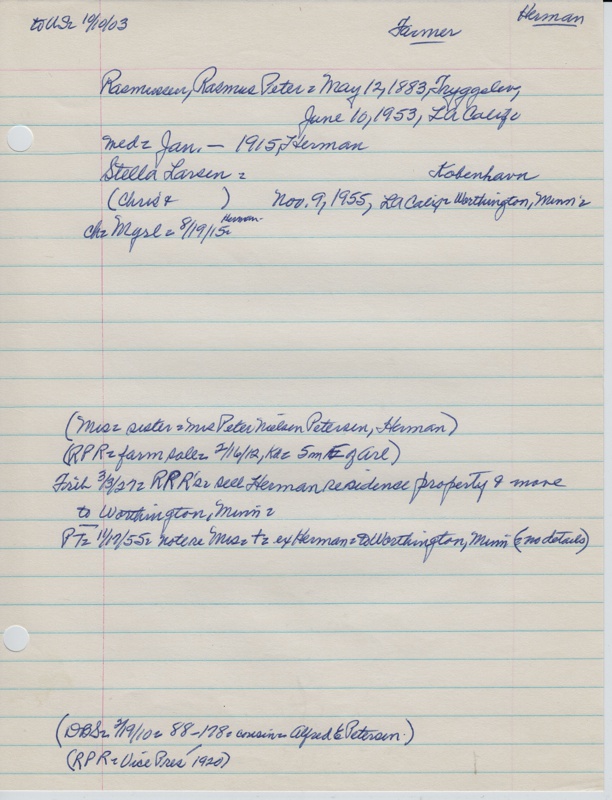 to US= 10/10/03
Farmer
Herman
Rasmussen, Rasmus Peter = May 12, 1883, Tryggelev,
June 10, 1953, LA Calif=
med= Jan. — 1915, Herman
Stella Larsen =
Kobenhavn
(Chris &     )     Nov. 9, 1955, LA Calif= Worthington, Minn=
ch= Myrl= 8/19/15= Herman
(Mrs= sister= Mrs Peter Nielsen Petersen, Herman)
(RPR= farm sale= 2/16/12, Ka= 5m E of Arl)
Frih 3/3/27= RPR's= sell Herman residence property & move
to Worthington, Minn=
PT= 11/17/55= note re Mrs= += ex Herman= to Worthington, Minn (= no details)
(DBS= 2/19/10= 88-178= cousin= Alfred E Petersen.)
(RPR= Vice Pres' 1920)